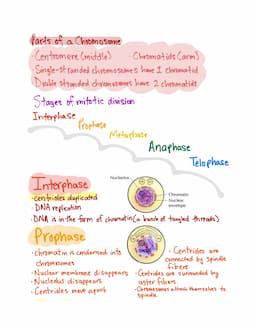 Parts of a Chromosome
· Centromere (middle) · Chromatids (arm)
Single-stranded chromosomes have 1 chromatid
Double stranded chromosomes have 2 chromatids
Stages of mitotic division
Interphase
Prophase
Metaphase
Anaphase
Telophase
Interphase
· Centrioles duplicated
· DNA replication
· DNA is in the form of chromatin (a bunch of tangled threads)
Nucleolus
Chromatin
Nuclear
envelope
Prophase
· Chromatin is condensed into
chromosomes
· Nuclear membrane disappears
· Nucleolus disappears
· Centrioles move apart
· Centrioles are
connected by spindle
fibers
· Centrioles are surrounded by
aster fibers
· Chromosomes attach themselves to
spindle